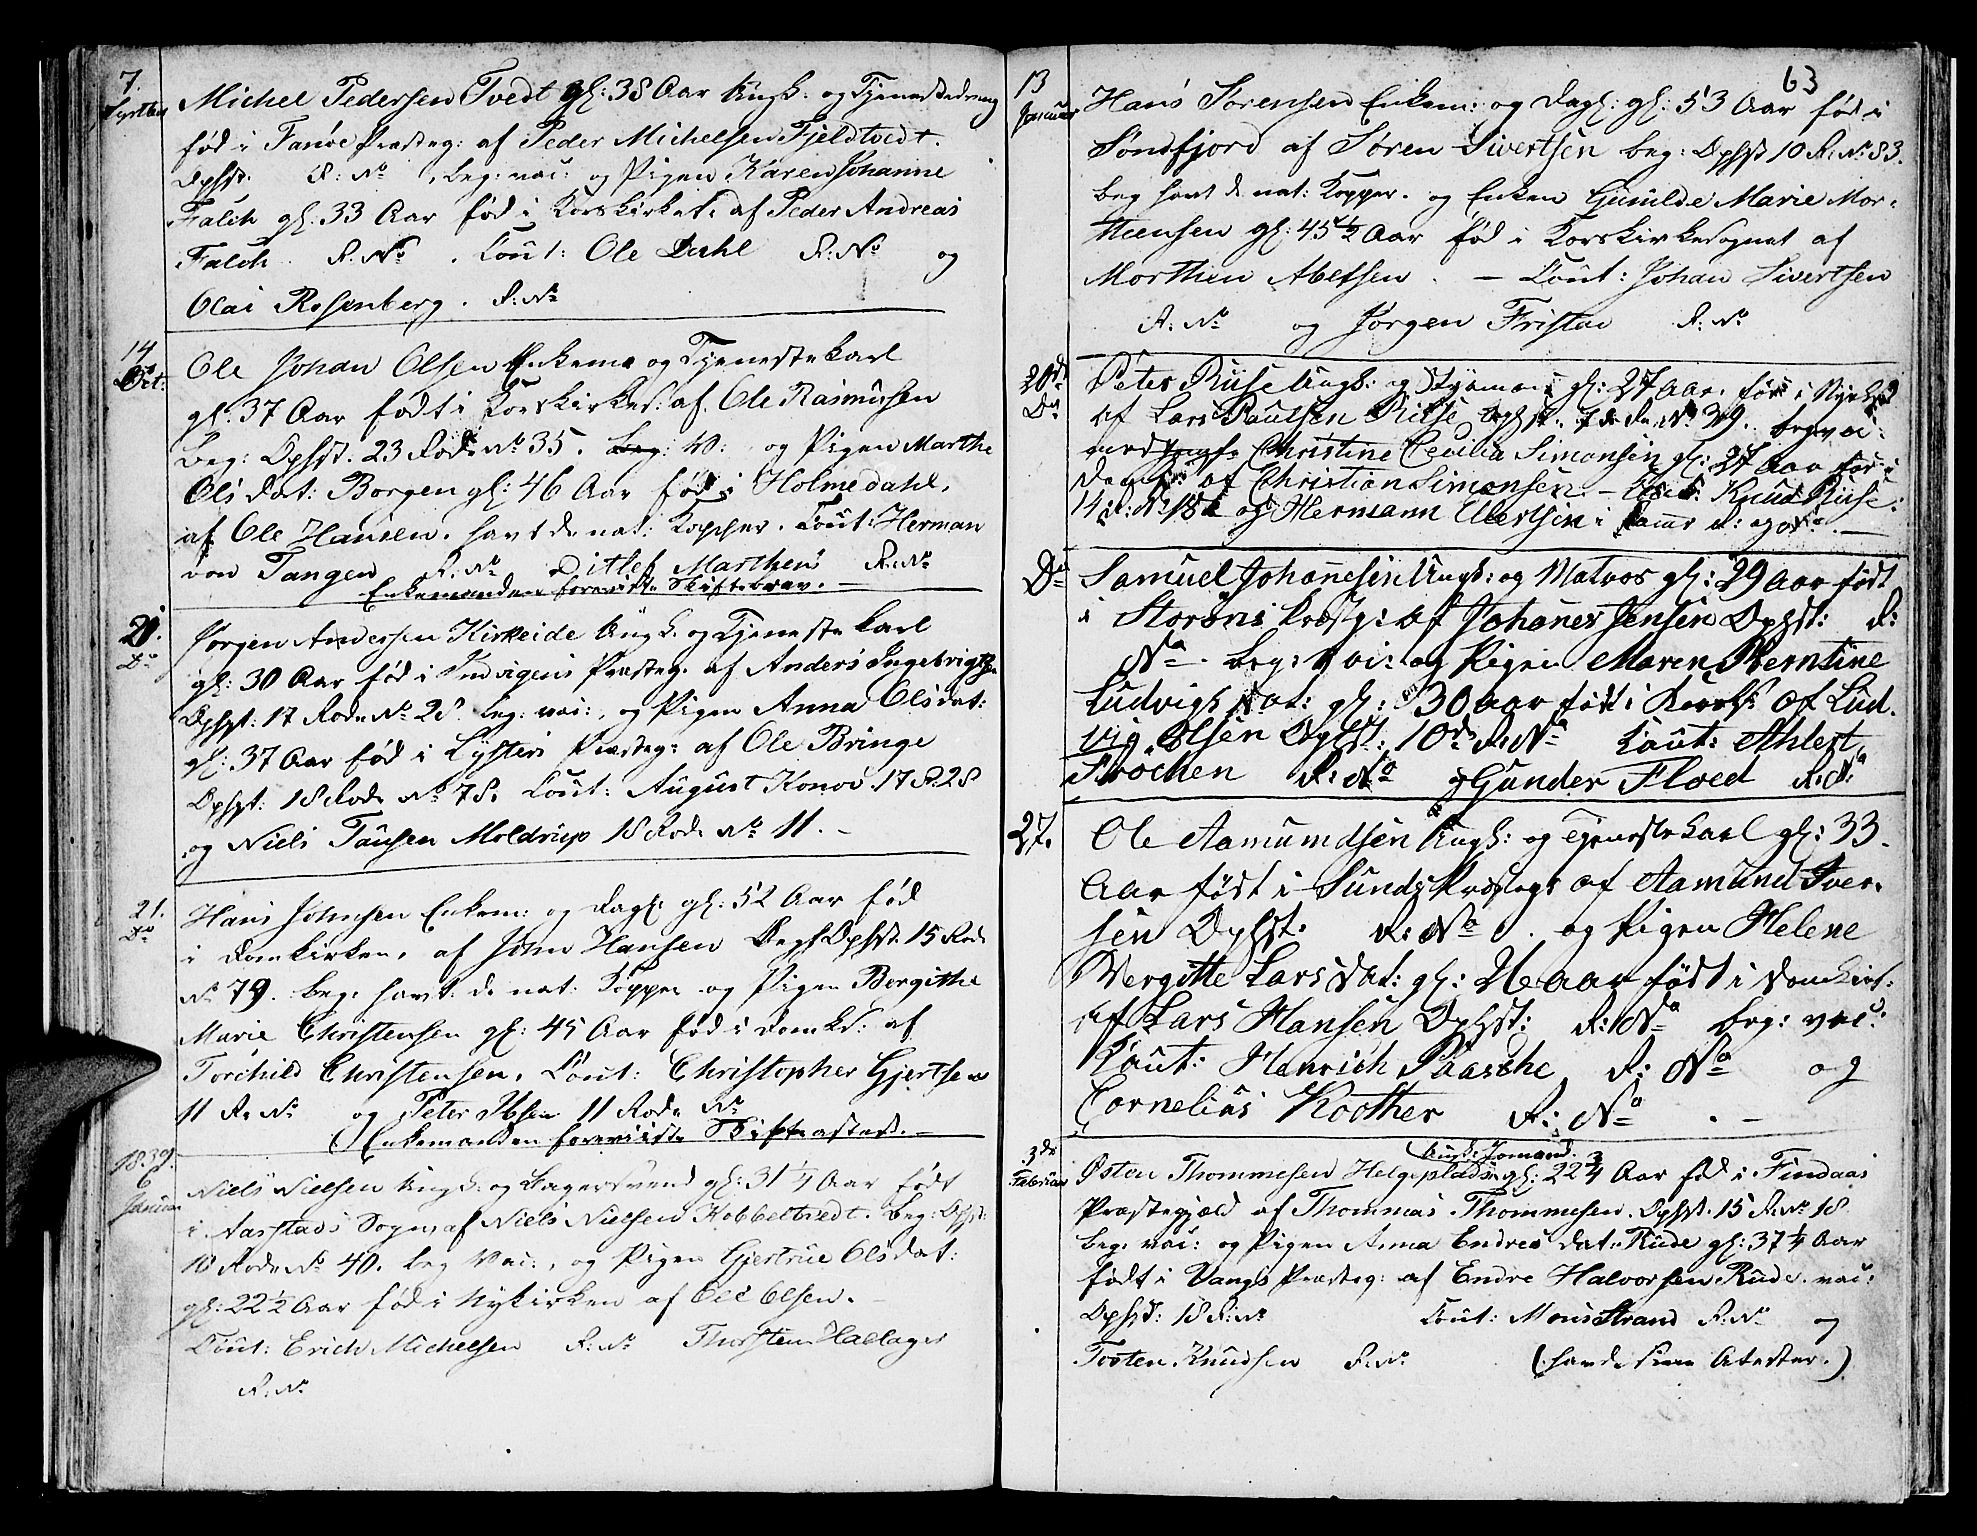 7.
Michel Pedersen Tvedt gl: 38 Aar Ungk: og Tjenestedreng
fød i Fanøe Præsteg: af Peder Michelsen Fjeldtvedt.
Ophst: R: No , beg: vac: og Pigen Karen Johanne
Falch gl. 33 Aar fød i Korskirkes: af Peder Andreas
Falch. R: No . Cout: Ole Dahl R: No og
Olai Rosenberg. R: No
14
Oct:
Ole Johan Olsen Enkema og Tjenestekarl
gl: 37 Aar født i Korskirkes: af Ole Rasmussen
beg: Ophst. 23 Rode No 35. og Pigen Marthe
Olsdat: Borgen gl: 46 Aar fød i Holmedahl,
af Ole Hansen. havt de nat: Kopper. Cout: Herman
von Tangen R: No Ditlef Marthens R: No
Enkemanden foreviste Skiftebrev. –
21.
Do
Jørgen Andersen Kirkeide Ungk. og Tjenestekarl
gl: 30 Aar fød i Indvigens Præsteg: af Anders Ingebrigtsen
Ophst: 17 Rode No 28 beg: vac:, og Pigen Anna Olsdat:
gl: 37 Aar fød i Lysters Præsteg: af Ole Bringe
Ophst: 18 Rode No 78. Cout: August Konow 17 R: 28
og Niels Tausen Moldrup 18 Rode No 11. –
21.
Do
Hans Johnsen Enkem: og Dagl: gl: 52 Aar fød
i Domkirken, af John Hansen Begs Ophst. 15 Rode
No 79. beg: havt de nat: Kopper og Pigen Bergithe
Marie Christensen gl: 45 Aar fød i Domks: af
Torchild Christensen. Cout: Christopher Gjertsen
11 R: No og Peter Ibsen 11 Rode No
Enkemanden foreviiste Skifteattest. –
1839.
6
Januar
Niels Nielsen Ungk: og Bagersvend gl: 31 1/4 Aar født
i Aarstads Sogn, af Niels Nielsen Kobbeltvedt. beg: Ophst:
10 Rode No 40. beg Vac:, og Pigen Gjertrue Olsdat:
gl: 22 1/2 Aar fød i Nykirken af Ole Olsen. –
Cout: Erich Michelsen R: No Thorsten Hallager
R: No
63
13
Januar
Hans Sørensen Enkem: og Dagl: gl: 53 Aar fød i
Søndfjord af Søren Sivertsen beg: Ophst 10 R: No 83.
beg havt de nat: Kopper. og Enken Gunilde Marie Mor-
thensen gl: 45 1/2 Aar fød i Korskirkesognet af
Morthen Abelsen. – Cout: Johan Sivertsen
R: No og Jørgen Fristad R: No
20de
Do
Peter Riise Ungk: og Styrmand gl: 27 Aar, fød i Nyekirk
af Lars Paulsen Riise Ophst. 7de R. No 39. beg vac:
med Christine Cecilia Simonsen gl: 27 Aar fød i
Domks: af Christian Simonsen. – Cout: Knud Riise
14 R: No 182 og Hermann Ellertsen i samme R: og No. –
Do
Samuel Johannesen Ungk: og Matros gl: 29 Aar født
i Storøens Præstg: af Johannes Jensen Ophst: R:
No . beg: vac: og Pigen Maren Berntine
Ludvigsdat: gl: 30 aar født i Korsk: af Lud.
vig Olsen Ophst: 10de R: No Cout: Ahlert
Frochen R: No og Gunder Floed R: No
27.
Ole Aamundsen Ungk: og Tjenestekarl gl: 33.
Aar født i Sunds Præsteg: af Aamund Iver-
sen Ophst: R: No . og Pigen Helene
Vergitte Larsdat: gl: 26 aar født i Domkirk:
af Lars Hansen Ophst: R: No beg: vac:
Cout: Henrich Paasche R: No og
Cornelius Koother R: No . –
3de
Februar
Ungk: Sømand.
Østen Thommesen Helgeplads gl: 22 3/4 Aar fød i Findaas
Præstegjæld af Thommas Thommesen. Ophst. 15 R: No 18.
beg: vac: og Pigen Anna Endresdat: Rude gl: 37 1/4 Aar
født i Vangs Præsteg: af Endre Halvorsen Rude. vac:
Ophst: 18 R: No Cout: Mons Strand R: No og
Tosten Knudsen R: No (havde sine Atester.)